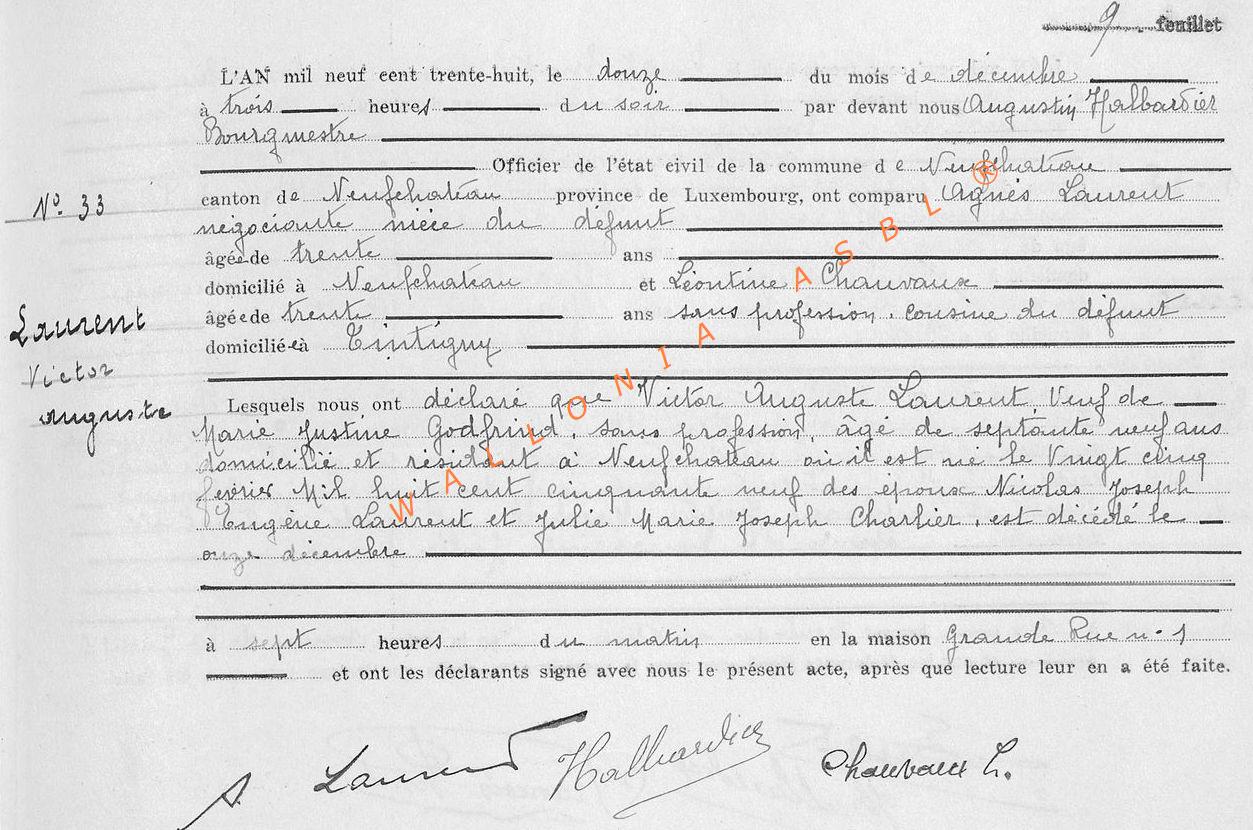 9 feuillet
L'AN mil neuf cent trente-huit, le douze du mois de décembre
à trois heures du soir par devant nous Augustin Halbardier
Bourgmestre
Officier de l'état civil de la commune de Neufchateau
N° 33
canton de Neufchateau province de Luxembourg, ont comparu Agnès Laurent
négociante nièce du défunt
âgée de trente ans
domicilié à Neufchateau et Léontine Chauvaux
âgée de trente ans sans profession, cousine du défunt
domiciliée à Tintigny
Laurent
Victor
Auguste
Lesquels nous ont déclaré que Victor Auguste Laurent, Veuf de
Marie Justine Godfrind, sans profession, âgé de septante neuf ans
domicilié et résidant à Neufchateau où il est né le Vingt cinq
février Mil huit cent cinquante neuf des époux Nicolas Joseph
Eugène Laurent et Julie Marie Joseph Charlier, est décédé le
onze décembre
à sept heures du matin en la maison Grande Rue n° 1
et ont les déclarants signé avec nous le présent acte, après que lecture leur en a été faite.
Laurent Halbardier Chauvaux L.
WALLONIA ASBL ®